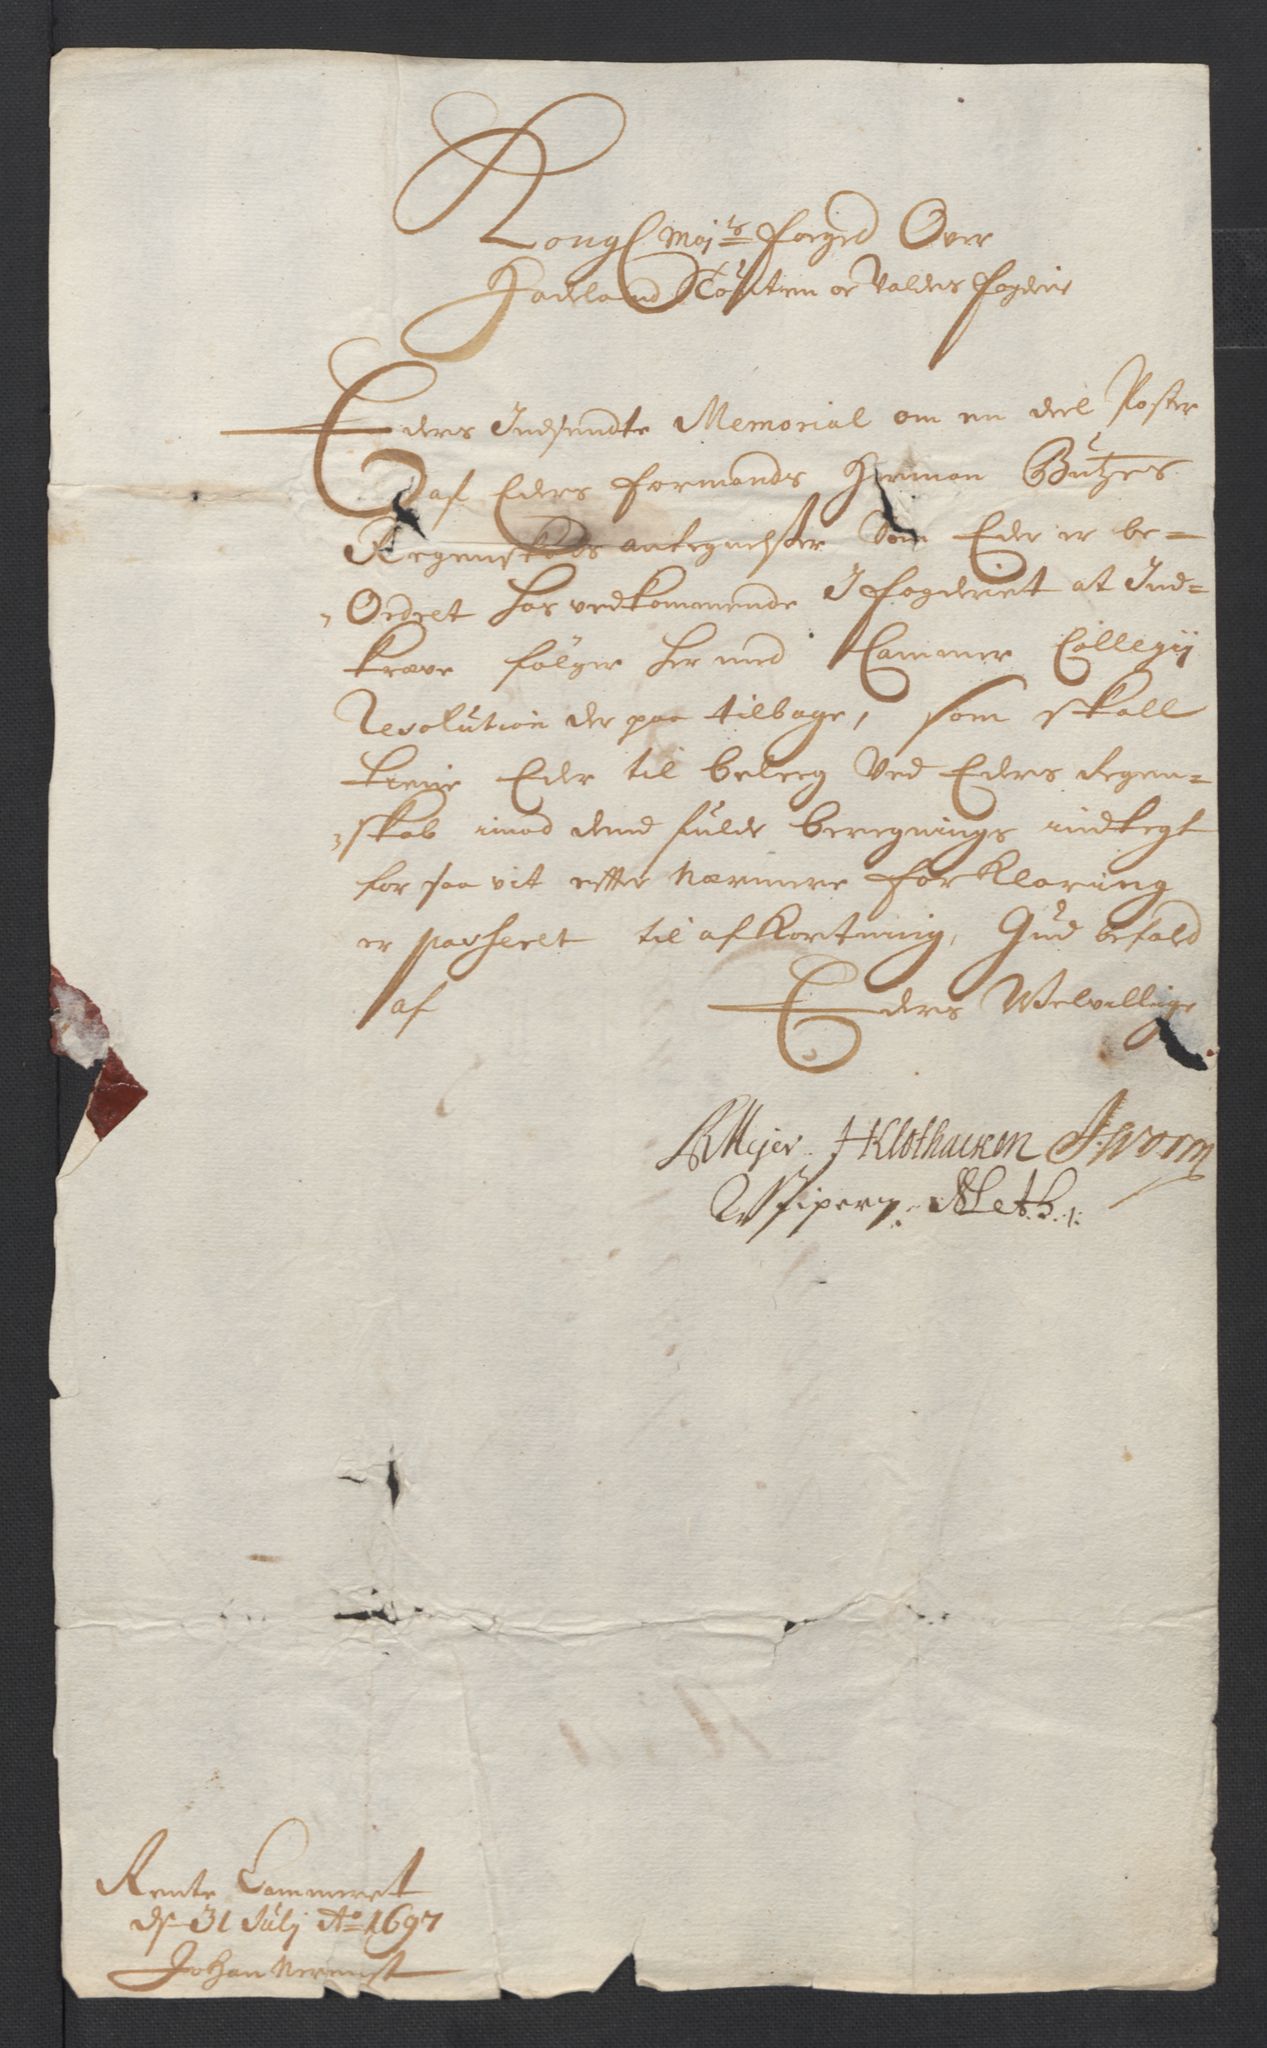 Kongl Maj:ts Foeged Over
Hadeland Toten oc Valders Fogderie
Eders Indsendte Memorial om en deel Poster
af Eders formands Herman Bützes
Regenskabs antegnelser Som Eder er be-
Ordret hos vedkommende I Fogderiet at Ind-
kræve følger her med Cammer Collegij
Resolution der paa tilbage, som skall
tiene Eder til beleg Ved Eders Regen-
skab imod dend fulde beregnings indtegt
for saa vit efter nærmere forklaring
er passeret til afkortning, Gud befald
af Eders Welvillige
Meyer H Klothacken J. Worm
Rente Cammeret
d 31 Julj Ao 1697
Johan